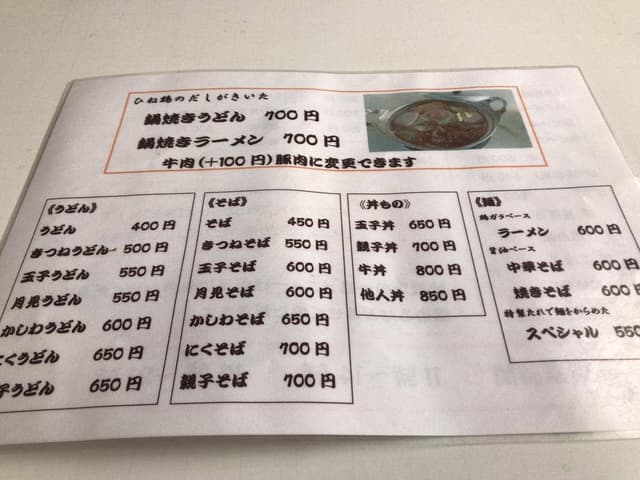 ひね鶏のだしがきいた
鍋焼きうどん 700円
鍋焼きラーメン 700円
牛肉(+100円)豚肉に変更できます
《うどん》
うどん 400円
きつねうどん 500円
玉子うどん 550円
月見うどん 550円
かしわうどん 600円
にくうどん 650円
子うどん 650円
《そば》
そば 450円
きつねそば 550円
玉子そば 600円
月見そば 600円
かしわそば 650円
にくそば 700円
親子そば 700円
《丼もの》
玉子丼 650円
親子丼 700円
牛丼 800円
他人丼 850円
《麺》
鶏ガラベース
ラーメン 600円
醤油ベース
中華そば 600円
焼きそば 600円
特製たれで麺をからめた
スペシャル 550